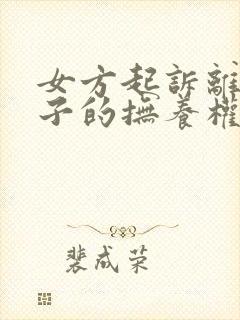 女方起訴離
子的撫養權
裴成荣